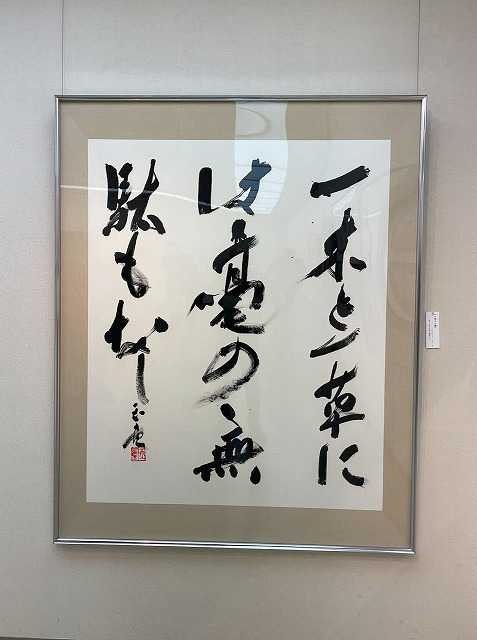 一木と一草に
は毫の無
駄もなし